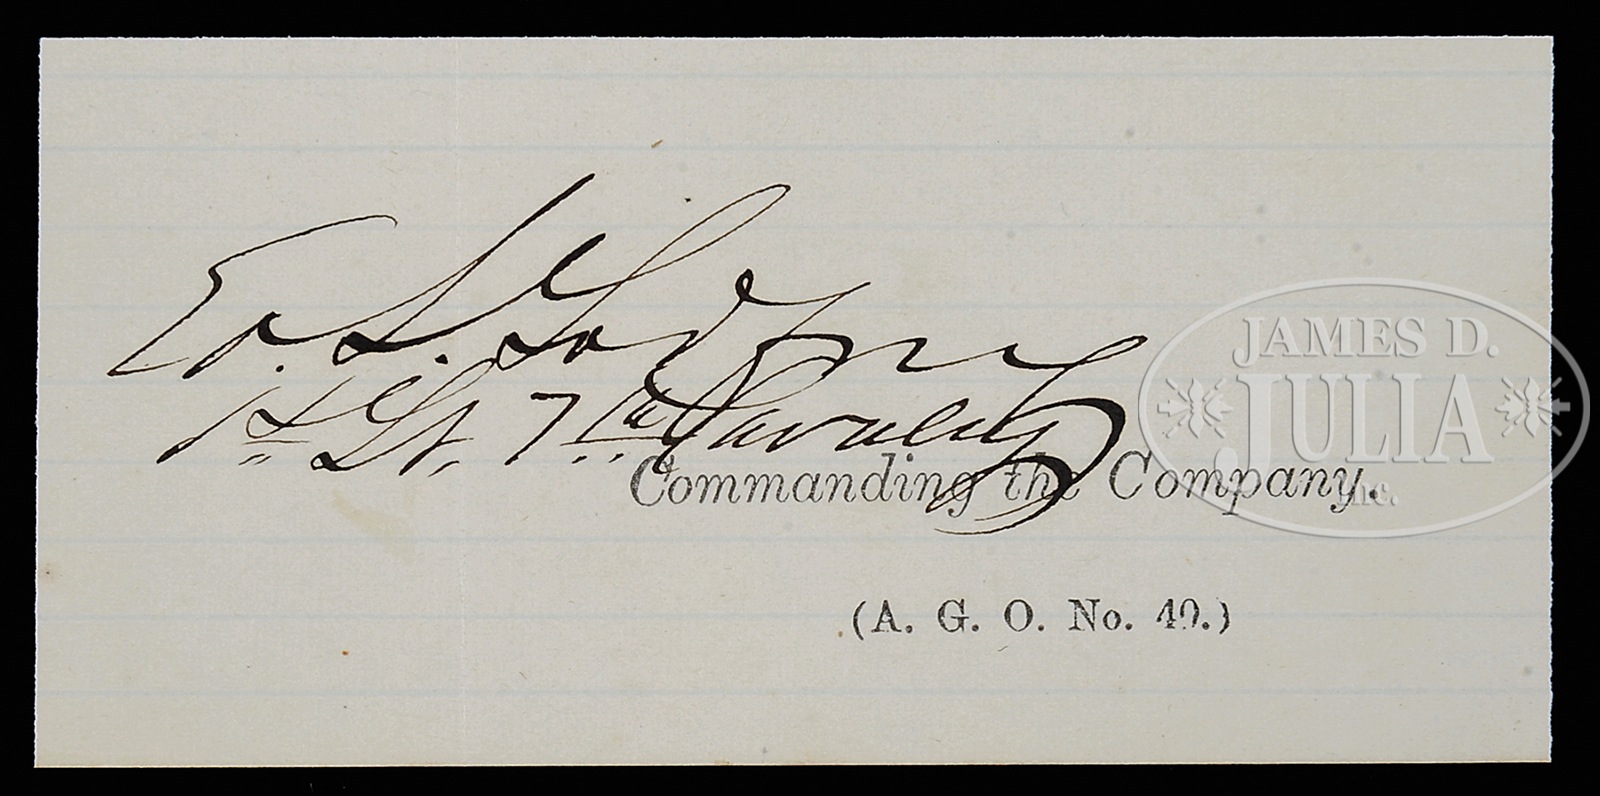 Ed. S. Godfrey
1st Lt. 7th Cavalry
Commanding the Company.
(A. G. O. No. 49.)
JAMES D.
JULIA
Inc.